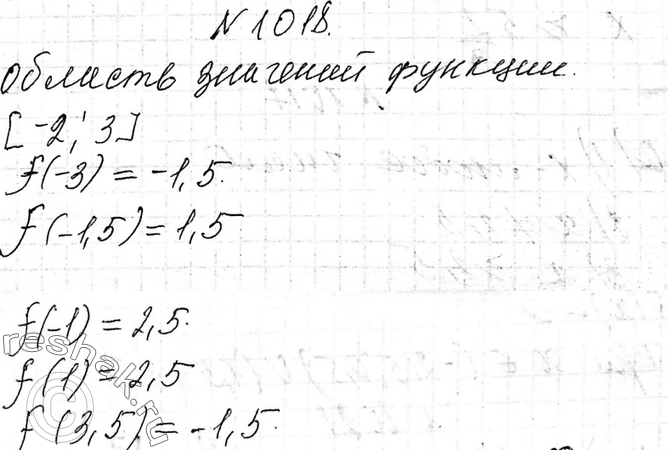 N 1018.
Область значений функции.
[-2; 3]
f(-3) = -1,5.
f(-1,5) = 1,5
f(-1) = 2,5.
f(1) = 2,5
f(3,5) = -1,5.
reshak.ru